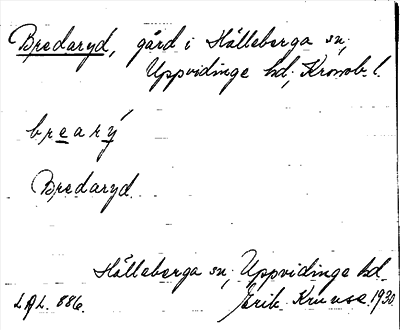 Bredaryd, gård i Hälleberga sn,
Uppvidinge hd, Kronob. l.
brearý
Bredaryd.
Hälleberga sn, Uppvidinge hd.
L.A.L. 886. Erik Kruuse. 1930